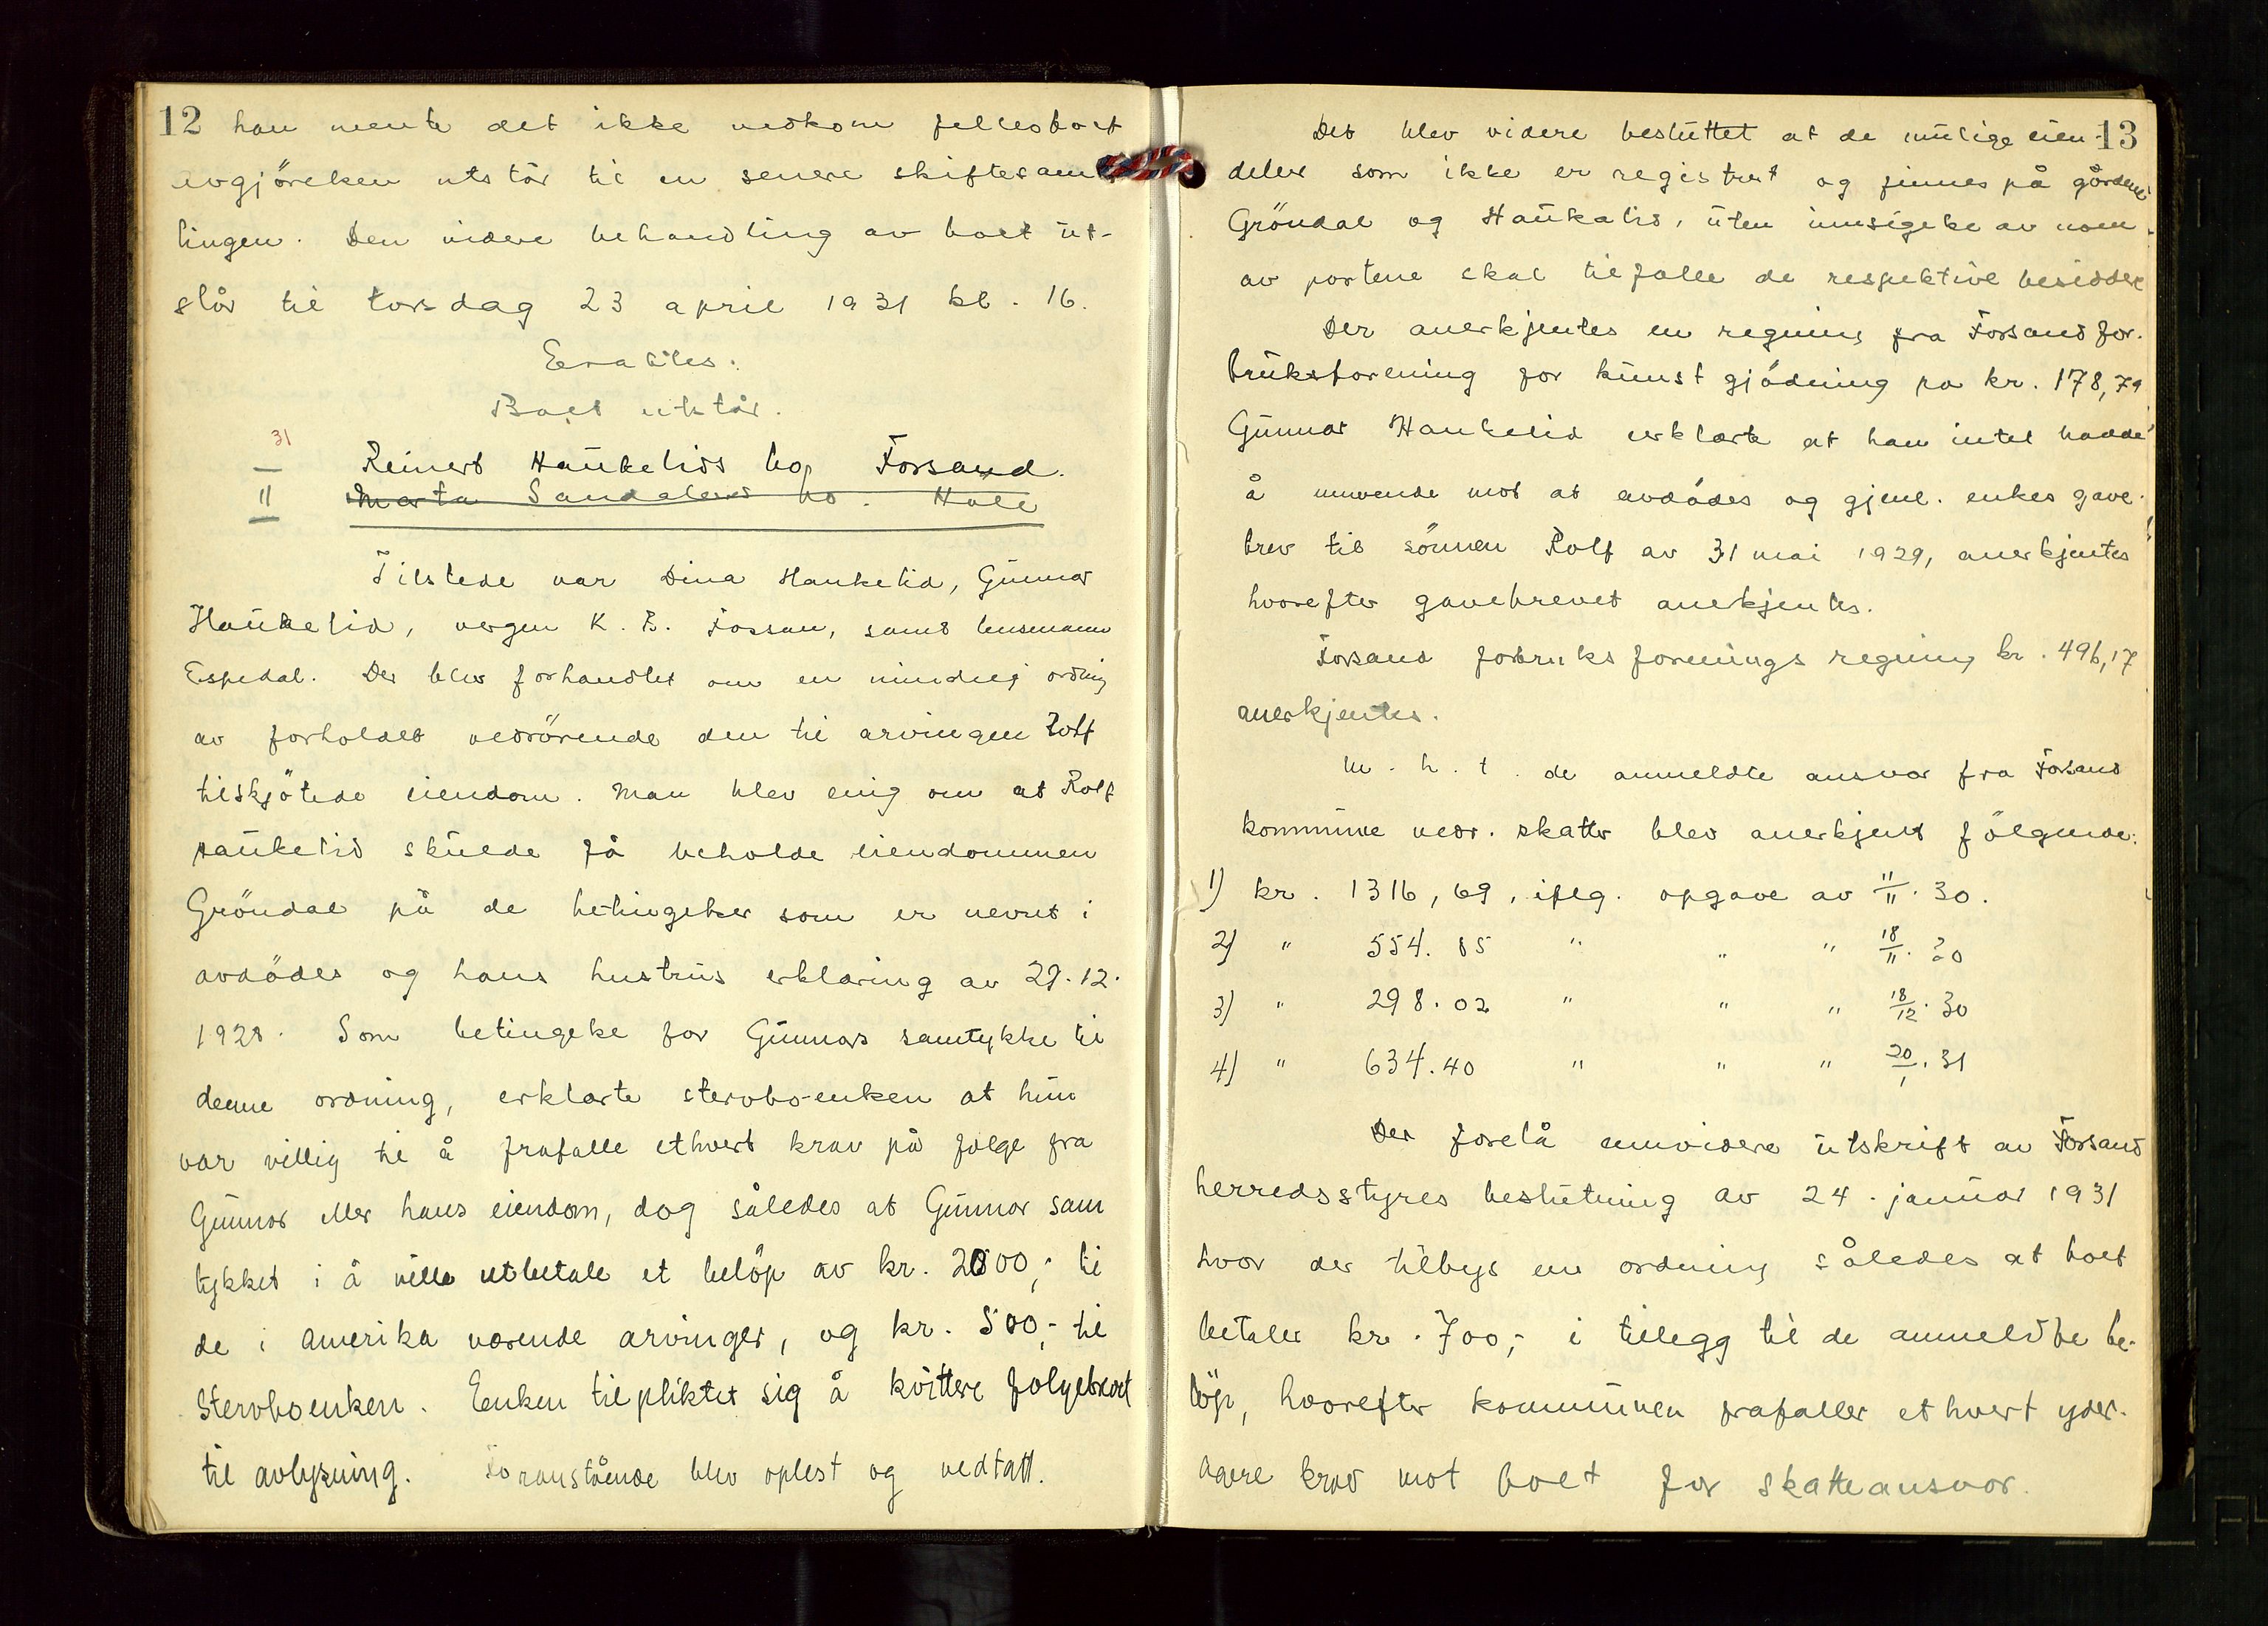 12 han mente det ikke vedkom fellesboet
avgjörelsen utstår til en senere skiftesam-
lingen. Den videre behandling av boet ut-
står til torsdag 23 april 1931 kl. 16.
Eratites:
Boet utstår.
31
— Reinert Haukelids bo, Forsand.
II Marta Sandalens bo. Höle
Tilstede var Dina Haukelid, Gunnar
Haukelid, vergen K. B. Fossan, samt lensmann
Espedal. Der blev forhandlet om en mindelig ordning
av forholdet vedrörende den til arvingen Rolf
tilskjötede eiendom. Man blev enig om at Rolf
Haukelid skulde få beholde eiendommen
Gröndal på de betingelser som er nevnt i
avdödes og hans hustrus erklæring av 29.12.
1928. Som betingelse for Gunnars samtykke til
denne ordning, erklærte stervboenken at hun
var villig til å frafalle ethvert krav på folge fra
Gunnar eller hans eiendom, dog således at Gunnar sam
tykket i å ville utbetale et belöp av kr. 2000,- til
de i Amerika værende arvinger, og kr. 500,- til
Stervboenken. Enken tilpliktet sig å kvittere folgebrevet
til avlysning. Foranstående blev oplest og vedtatt.
13
Det blev videre besluttet at de mulige eien-
deler som ikke er registrert og finnes på gårdene
Gröndal og Haukalid, uten innsigelse av noen
av partene skal tilfalle de respektive besiddere
Der anerkjentes en regning fra Forsand for-
bruksforening for kunstgjödning på kr. 178,79
Gunnar Haukelid erklærte at han intet hadde
å innvende mot at avdödes og gjenl. enkes gave-
brev til sönnen Rolf av 31 mai 1929, anerkjentes
hvorefter gavebrevet anerkjentes.
Forsand forbruksforenings regning kr. 496,17
anerkjentes.
M. h. t. de anmeldte ansvar fra Forsand
kommune vedr. skatter blev anerkjent fölgende:
1) kr. 1316,69, iflg. opgave av 11/11. 30.
2) " 554.85 " " " 18/11. 30
3) " 298.02 " " " 18/12. 30
4) " 634.40 " " " 20/1. 31
Der forelå ennvidere utskrift av Forsand
herredsstyres beslutning av 24. januar 1931
hvor der tilbys en ordning således at boet
betaler kr. 700,- i tillegg til de anmeldte be-
löp, hvorefter kommunen frafaller ethvert yder-
ligere krav mot boet for skatteansvar.